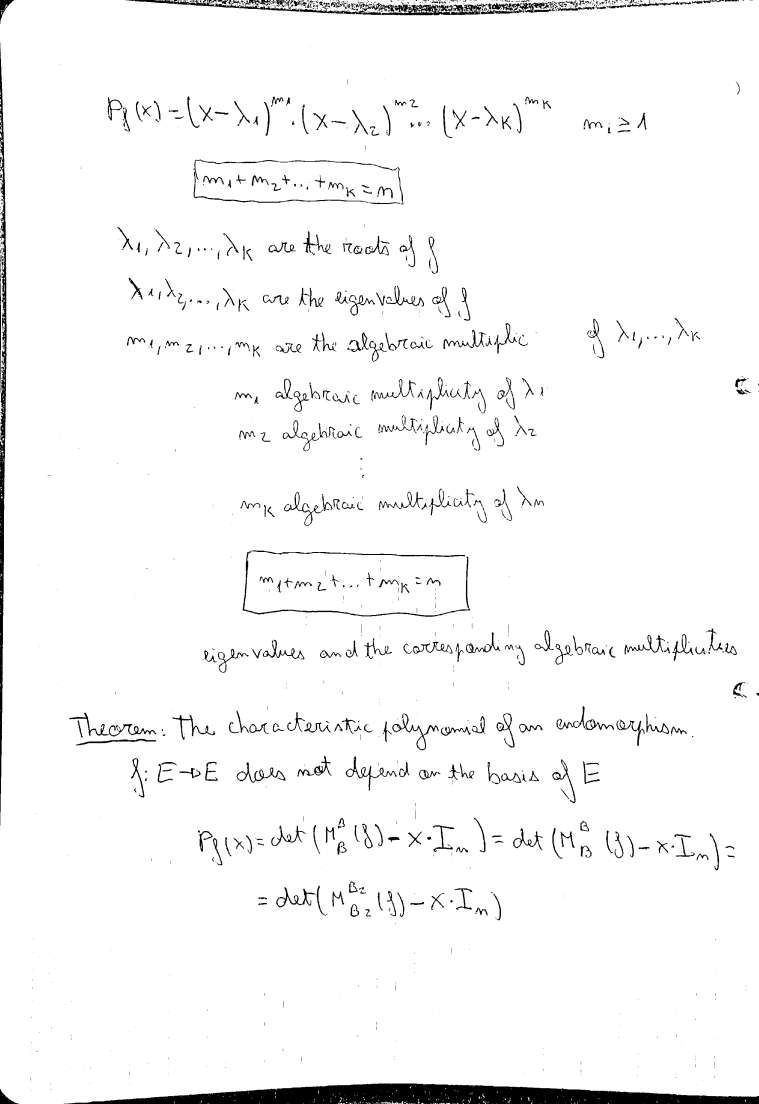 P_f(x) = (x-λ₁)^m₁ · (x-λ₂)^m₂ ... (x-λ_K)^m_K   m_i ≥ 1
m₁+m₂+...+m_K = n
λ₁, λ₂, ..., λ_K are the roots of f
λ₁, λ₂, ..., λ_K are the eigenvalues of f
m₁, m₂, ..., m_K are the algebraic multiplic   of λ₁, ..., λ_K
m₁ algebraic multiplicity of λ₁
m₂ algebraic multiplicity of λ₂
⋮
m_K algebraic multiplicity of λ_n
m₁+m₂+...+m_K = n
eigenvalues and the corresponding algebraic multiplicities
Theorem: The characteristic polynomial of an endomorphism.
f: E→E does not depend on the basis of E
P_f(x) = det (M_B^B (f) - x·I_n) = det (M_B^B (f) - x·I_n) =
= det (M_B₂^B₂ (f) - x·I_n)